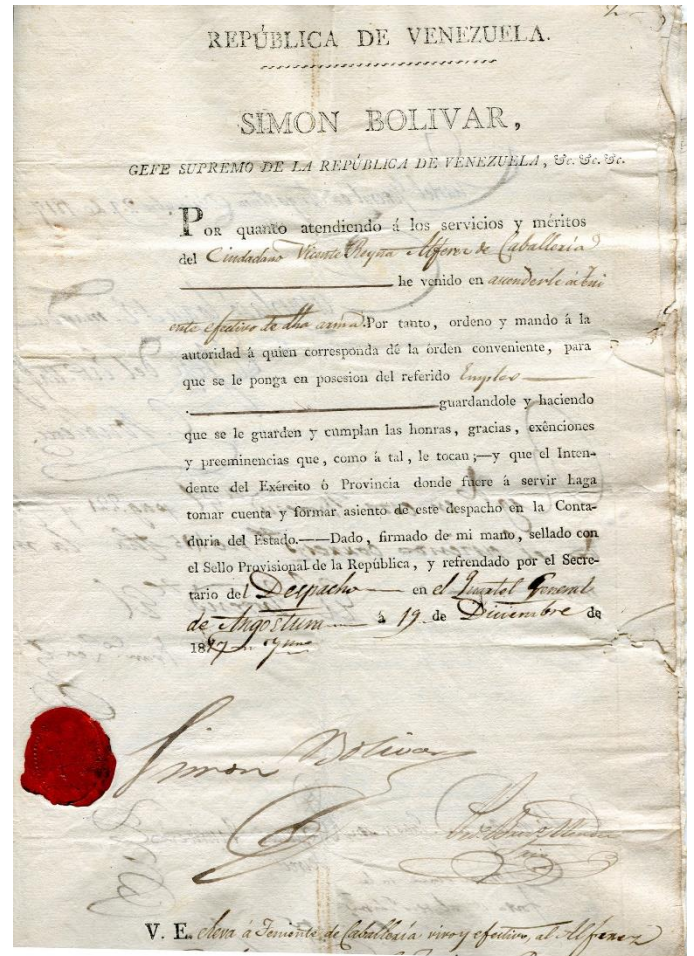 REPÚBLICA DE VENEZUELA.
SIMON BOLIVAR,
GEFE SUPREMO DE LA REPÚBLICA DE VENEZUELA, &c. &c. &c.
POR quanto atendiendo á los servicios y méritos
del Ciudadano Vicente Reyna Alferez de Caballeria
he venido en ascenderle á Teni
ente efectivo de dha arma. Por tanto, ordeno y mando á la
autoridad á quien corresponda dé la órden conveniente, para
que se le ponga en posesion del referido Empleo
guardandole y haciendo
que se le guarden y cumplan las honras, gracias, exênciones
y preeminencias que, como á tal, le tocan;—y que el Inten-
dente del Exército ó Provincia donde fuere á servir haga
tomar cuenta y formar asiento de este despacho en la Conta-
duria del Estado.——Dado, firmado de mi mano, sellado con
el Sello Provisional de la República, y refrendado por el Secre-
tario del Despacho en el Quartel General
de Angostura á 19 de Diciembre de
1817
Simon Bolivar
V. E. eleva á Teniente de Caballeria vivo y efectivo, al Alferez